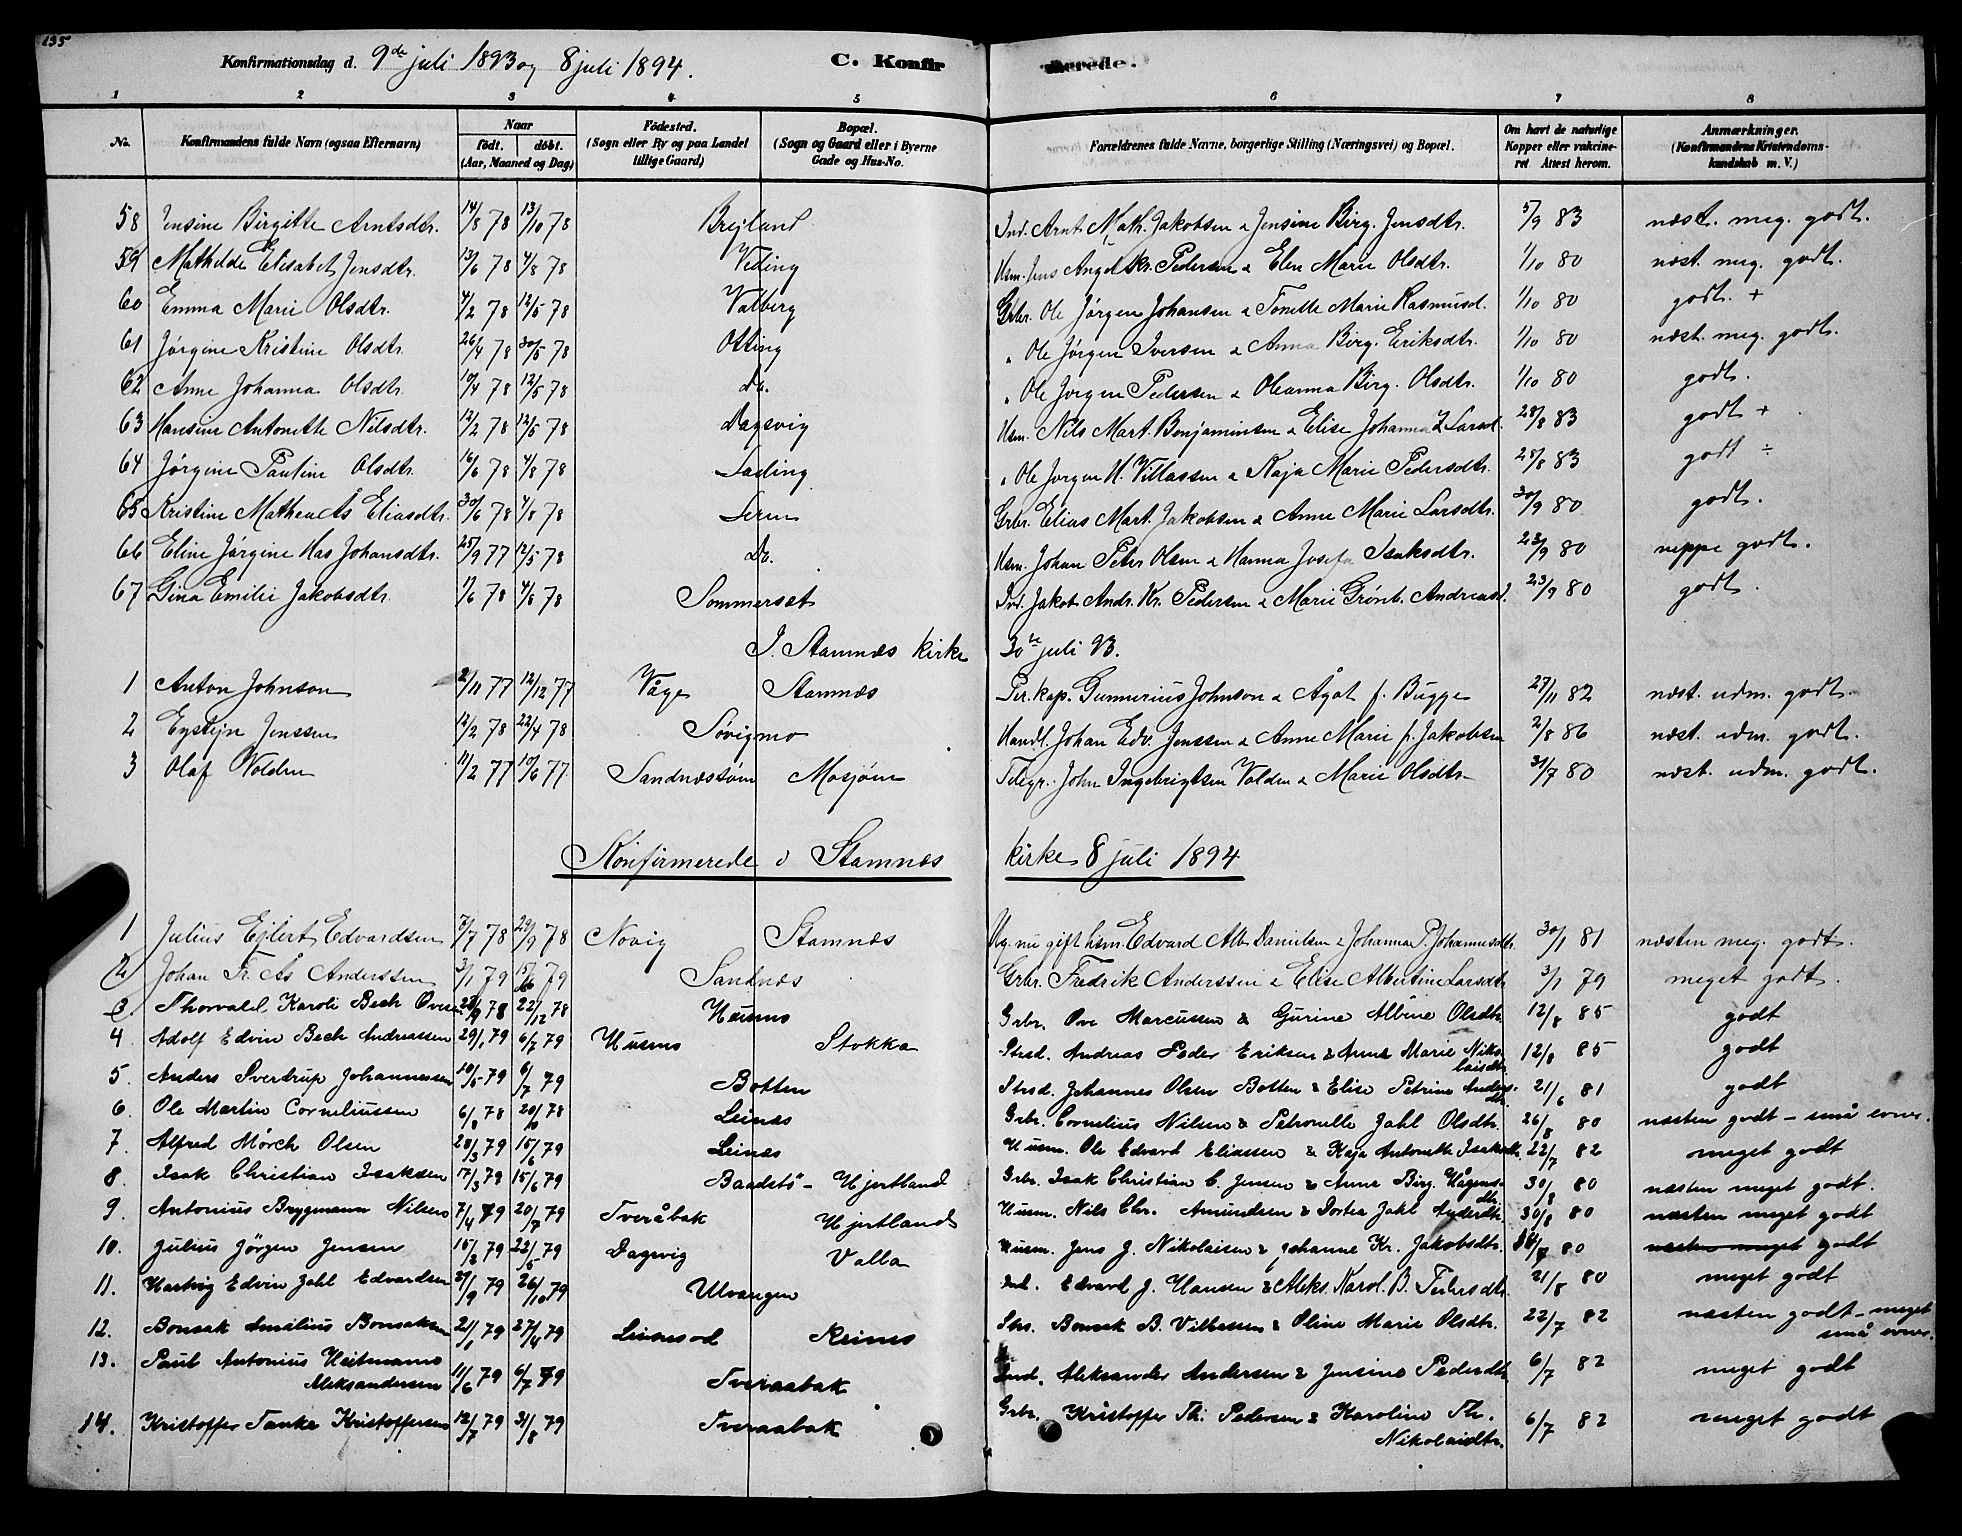 135
Konfirmationsdag d. 9de juli 1893 og 8 juli 1894. C. Konfirmerede.
1 2 3 4 5 6 7 8
No. Konfirmandens fulde Navn (ogsaa Efternavn) Naar født. døbt. (Aar, Maaned og Dag) Fødested. (Sogn eller By og paa Landet tillige Gaard) Bopæl. (Sogn og Gaard eller i Byerne Gade og Hus-No. Forældrenes fulde Navne, borgerlige Stilling (Næringsvei) og Bopæl. Om havt de naturlige Kopper eller vakcineret Attest herom. Anmærkninger. (Konfirmandens Kristendomskundskab m. V.)
58 Jensine Birgitte Arntsdtr. 14/8 78 13/10 78 Brejland Ind. Arnt Math. Jakobsen & Jensine Birg. Jensdtr. 5/9 83 næst. meg. godt.
59 Mathilde Elisabet Jensdtr. 13/6 78 4/8 78 Veding Hsm. Jens Angel Kr. Pedersen & Elen Marie Olsdtr. 1/10 80 næst. meg. godt.
60 Emma Marie Olsdtr. 4/2 78 12/5 78 Valberg Grbr. Ole Jørgen Johansen & Tonette Marie Rasmusd. 1/10 80 godt. +
61 Jørgine Kristine Olsdtr. 26/4 78 30/5 78 Otting " Ole Jørgen Iversen & Anna Birg. Eriksdtr. 1/10 80 næst. meg. godt.
62 Anne Johanna Olsdtr. 10/4 78 12/5 78 Do. " Ole Jørgen Pedersen & Oleanna Birg. Olsdtr. 1/10 80 godt.
63 Hansine Antonette Nilsdtr. 12/2 78 12/5 78 Dagsvig Hsm. Nils Mart. Benjaminsen & Elise Johanna Z Larsd. 28/8 83 godt +
64 Jørgine Pauline Olsdtr. 16/6 78 4/8 78 Lading " Ole Jørgen H. Villassen & Kaja Marie Pedersdtr. 28/8 83 godt ÷
65 Kristine Mathea Ås Eliasdtr. 30/6 78 4/8 78 Leren Grbr. Elias Mart. Jakobsen & Anne Marie Larsdtr. 30/9 80 godt.
66 Eline Jørgine Has Johansdtr. 25/9 77 12/5 78 Do. Hsm. Johan Peter Olsen & Hanna Josefa Isaksdtr. 23/9 80 neppe godt.
67 Gina Emilie Jakobsdtr. 17/6 78 4/8 78 Sommerset Ind. Jakob Andr. Kr. Pedersen & Marie Grønb. Andreasd. 23/9 80 godt.
I Stamnæs kirke 30te juli 93.
1 Anton Johnson 2/11 77 12/12 77 Våge Stamnæs Per. kap. Gunnerius Johnson & Ågot f. Bugge 27/11 82 næst. udm. godt.
2 Eystejn Jenssen 12/2 78 22/4 78 Søvigmo Handl. Johan Edv. Jenssen & Anne Marie f. Jakobsen 2/8 86 næst. udm. godt.
3 Olaf Volden 11/2 77 10/6 77 Sandnæssøen Mosjøen Telegr. John Ingebrigtsen Volden & Marie Olsdtr 31/7 80 næst. udm. godt.
Konfirmerede i Stamnæs kirke 8 juli 1894
1 Julius Ejlert Edvardsen 7/7 78 29/9 78 Novig Stamnæs Ug. nu gift hsm. Edvard Alb. Danielsen & Johanna P. Johannesdtr. 30/1 81 næsten meg. godt.
2 Johan Fr. As Anderssen 3/1 79 15/6 79 Sandnæs Grbr. Fredrik Anderssen & Elise Albertine Larsdtr. 3/1 79 meget godt.
3. Thorvald Karoli Bech Oves. 28/9 78 22/12 78 Husmo Grbr. Ove Marcussen & Gurine Albine Olsdtr. 12/8 85 godt
4. Adolf Edvin Bech Andreassen 29/1 79 6/7 79 Husmo Stokka Strsd. Andreas Peder Eriksen & Anne Marie Nikolaisdtr. 12/8 85 godt
5. Anders Sverdrup Johannessen 10/5 79 6/7 79 Botten Strsd. Johannes Olsen Botten & Elise Petrine Andersdtr. 21/6 81 godt
6. Ole Martin Corneliussen 6/8 78 20/10 78 Leines Grbr. Cornelius Nilsen & Petronelle Jahl Olsdtr. 26/8 80 næsten godt - små evner.
7. Alfred Mörch Olsen 28/3 79 15/6 79 Leines Husm. Ole Edvard Eliassen & Kaja Antonette Isaksdtr. 22/7 82 meget godt
8. Isak Christian Isaksen 17/3 79 15/6 79 Baadstö - Hjertland Grbr. Isak Christian C. Jensen & Anne Birg. Hågensdtr. 30/8 80 næsten meget godt.
9. Antonius Brygmann Nilsen 7/4 79 20/7 79 Tveråbak Hjertland Husm. Nils Chr. Amundsen & Dortea Jahl Andersdtr. 30/8 80 næsten meget godt
10. Julius Jörgen Jensen 15/2 79 22/5 79 Dagsvig Valla Husm. Jens J. Nikolaisen & Johanne Kr. Jakobsdtr. 80 næsten meget godt
11. Hartvig Edvin Jahl Edvardsen 21/9 79 26/10 79 Ulvangen Ind. Edvard J. Hansen & Aleks. Karol. B. Pedersdtr. 21/8 80 meget godt
12. Bonsak Amilius Bonsaksen 21/1 79 27/4 79 Leinesod Reines Strs. Bonsak B. Villassen & Oline Marie Olsdtr. 22/7 82 næsten godt - meget små evner.
13. Paul Antonius Heitmann Aleksandersen 11/6 79 6/7 79 Tveraabak Ind. Aleksander Andersen & Jensine Pedersdtr 6/7 82 meget godt
14. Kristoffer Tanke Kristoffersen 12/7 79 31/8 79 Tveraabak Grbr. Kristoffer Th. Pedersen & Karoline Th. Nikolaidtr. 6/7 82 meget godt